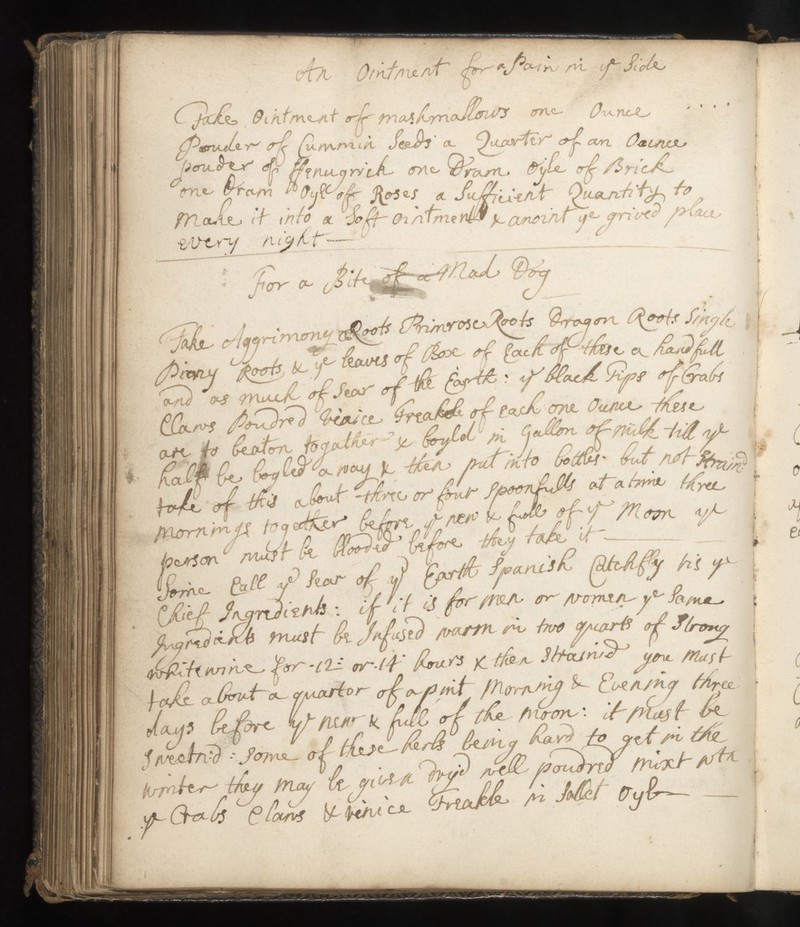 An Ointment for a Pain in ye Side
Take Ointment of mashmallows one Ounce
Pouder of Cummin Seeds a Quarter of an Ounce
pouder of ffenugrick one Dram Oyle of Brick
one Dram Oyle of Roses a Sufficient Quantity to
Make it into a Soft ointment & anoint ye grived place
every night
For a Bite of a Mad Dog
Take Aggrimony Roots Primrose Roots Dragon Roots Single
Piony Roots, & ye leaves of Box of Each of these a handfull
and as much of Sear of the Earth: ye black Tips of Crabs
Claws Poudred Venice Treakle of each one Ounce these
are to beaton togather & boyld in Gallon of milk till ye
half be boyled away & then put into bottles but not Strain'd
take of this about three or four Spoonfulls at a time three
Mornings together before ye new & full of ye Moon ye
person must be blooded before they take it
Some Call ye Sear of ye Earth Spanish Catchfly tis ye
Chief Ingredients: if it is for men or women ye Same
Ingredients must be Infused warm in two quarts of Strong
whitewine for 12: or 14: hours & then Strained you Must
take about a quarter of a pint Morning & Evening three
days before ye new & full of the moon: it Must be
Sweetn'd: Some of these herbs being hard to get in the
winter they may be given dry'd well poudred mixt wth
ye Crabs Claws & venice Treakle in Sallet Oyle